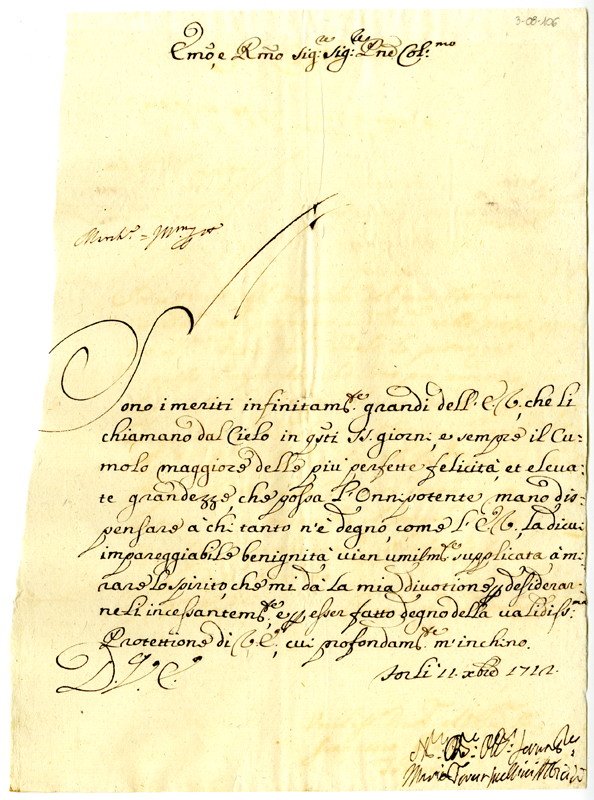 3-08-106
Emo, e Rmo Sig:re Sig:re Pne Col:mo
Sono i meriti infinitam:te grandi dell' E.V., che li
chiamano dal Cielo in qsti Ss. giorni, e sempre il Cu:
molo maggiore delle più perfette felicità, et eleva:
te grandezze, che possa l'Onnipotente mano dis:
pensare à chi tanto n'è degno, come l'E.V., la di cui
impareggiabile benignità vien umilm:te supplicata, à mi:
rare lo spirito, che mi dà la mia divotione p desiderar:
neli incessantem:te, e p esser fatto degno della validiss:ma
Protettione di V.E., cui profondam:te m'inchino.
D. V. E.
Forlì 11. xbre 1712.
Maria